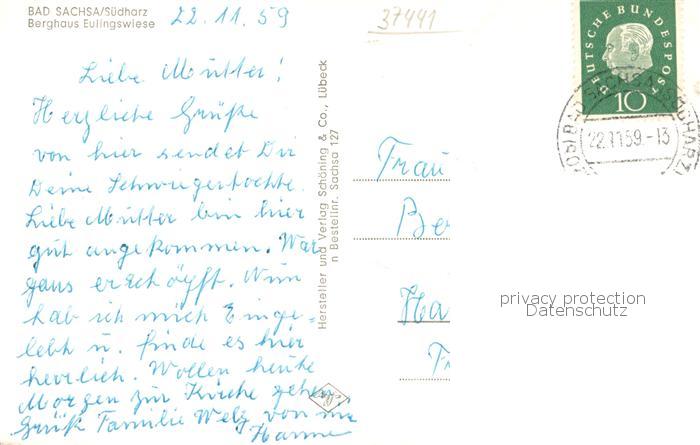 BAD SACHSA/Südharz
Berghaus Eulingswiese
22.11.59
37441
Liebe Mutter!
Herzliche Grüße
von hier sendet Dir
Deine Schwiegertochter.
Liebe Mutter bin hier
gut angekommen. War
ganz erschöpft. Nun
hab ich mich Einge-
lebt u. finde es hier
herrlich. Wollen heute
Morgen zur Kirche gehen
Grüß Familie Welz von mir
Hanne
Hersteller und Verlag Schöning & Co., Lübeck
n Bestellnr. Sachsa 127
Frau
Be
Ha
Fr
DEUTSCHE BUNDESPOST
10
BAD SACHSA (SÜDHARZ)
22.11.59.-13
privacy protection
Datenschutz